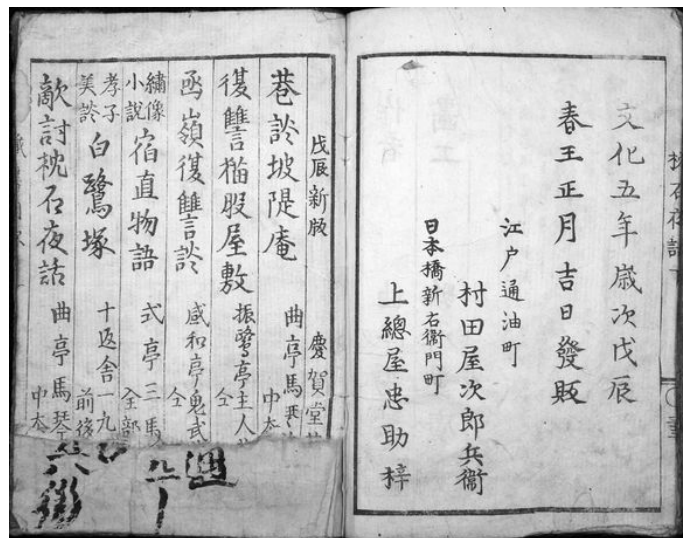 文化五年歳次戊辰
春王正月吉日發販
江戸通油町
村田屋次郎兵衞
日本橋新右衞門町
上總屋忠助梓
戊辰新版
慶賀堂
巷談坡隄庵
曲亭馬琴
中本
復讐猫股屋敷
振鷺亭主人
仝
凾嶺復讐談
感和亭鬼武
仝
繡像
小説
宿直物語
式亭三馬
全部
孝子
美談
白鷺塚
十返舎一九
前後
敵討枕石夜話
曲亭馬琴
中本